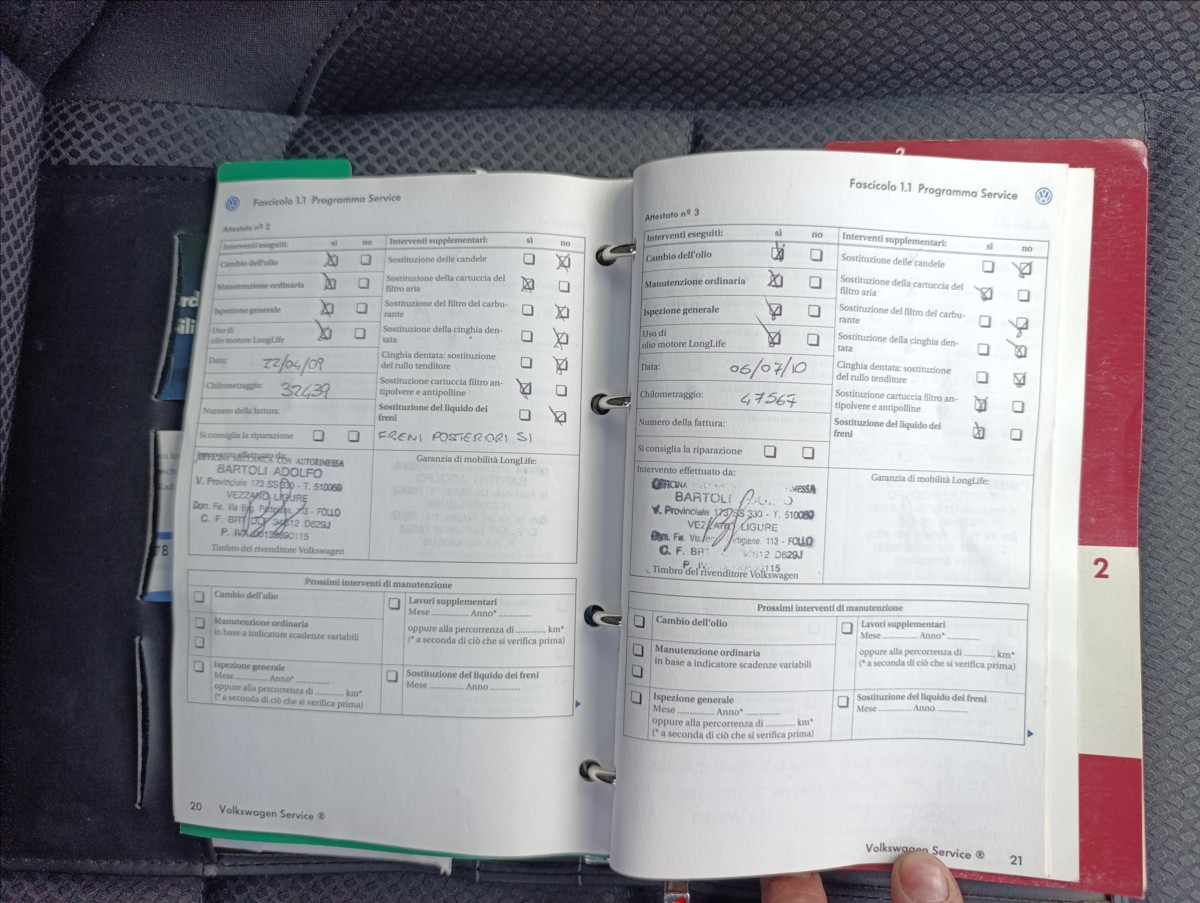 Fascicolo 1.1 Programma Service
Attestato nº 2
Interventi eseguiti: sì no
Interventi supplementari: sì no
Cambio dell'olio
Manutenzione ordinaria
Ispezione generale
Uso di
olio motore LongLife
Data: 22/04/09
Chilometraggio: 32439
Numero della fattura:
Si consiglia la riparazione
Sostituzione delle candele
Sostituzione della cartuccia del
filtro aria
Sostituzione del filtro del carbu-
rante
Sostituzione della cinghia den-
tata
Cinghia dentata: sostituzione
del rullo tenditore
Sostituzione cartuccia filtro an-
tipolvere e antipolline
Sostituzione del liquido dei
freni
FRENI POSTERIORI SI
Intervento effettuato da:
OFFICINA MECCANICA CON AUTORIMESSA
BARTOLI ADOLFO
V. Provinciale 173 SS 330 - T. 510069
VEZZANO LIGURE
Dom. Fis. Via 113 - FOLLO
C. F. BRT D629J
P. IVA
Timbro del rivenditore Volkswagen
Garanzia di mobilità LongLife:
Prossimi interventi di manutenzione
Cambio dell'olio
Manutenzione ordinaria
in base a indicatore scadenze variabili
Ispezione generale
Mese ............... Anno* ...............
oppure alla percorrenza di ............ km*
(* a seconda di ciò che si verifica prima)
Lavori supplementari
Mese ............... Anno* ...............
oppure alla percorrenza di ............ km*
(* a seconda di ciò che si verifica prima)
Sostituzione del liquido dei freni
Mese ............... Anno ...............
20 Volkswagen Service ®
Fascicolo 1.1 Programma Service
Attestato nº 3
Interventi eseguiti: sì no
Interventi supplementari: sì no
Cambio dell'olio
Manutenzione ordinaria
Ispezione generale
Uso di
olio motore LongLife
Data: 06/07/10
Chilometraggio: 47567
Numero della fattura:
Si consiglia la riparazione
Sostituzione delle candele
Sostituzione della cartuccia del
filtro aria
Sostituzione del filtro del carbu-
rante
Sostituzione della cinghia den-
tata
Cinghia dentata: sostituzione
del rullo tenditore
Sostituzione cartuccia filtro an-
tipolvere e antipolline
Sostituzione del liquido dei
freni
Intervento effettuato da:
OFFICINA
BARTOLI
V. Provinciale 173 SS 330 - T. 510069
LIGURE
Dom. Fis. Via 113 - FOLLO
C. F. D629J
Timbro del rivenditore Volkswagen
Garanzia di mobilità LongLife:
Prossimi interventi di manutenzione
Cambio dell'olio
Manutenzione ordinaria
in base a indicatore scadenze variabili
Ispezione generale
Mese ............... Anno* ...............
oppure alla percorrenza di ............ km*
(* a seconda di ciò che si verifica prima)
Lavori supplementari
Mese ............... Anno* ...............
oppure alla percorrenza di ............ km*
(* a seconda di ciò che si verifica prima)
Sostituzione del liquido dei freni
Mese ............... Anno ...............
Volkswagen Service ® 21
2
2